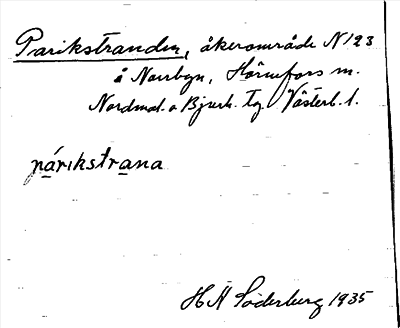 Parikstranden, åkerområde N 123
å Norrbyn, Hörnefors m.
Nordmal. o Bjurh. Tg. Västerb. l.
párikstrana
H Ä Söderburg 1935